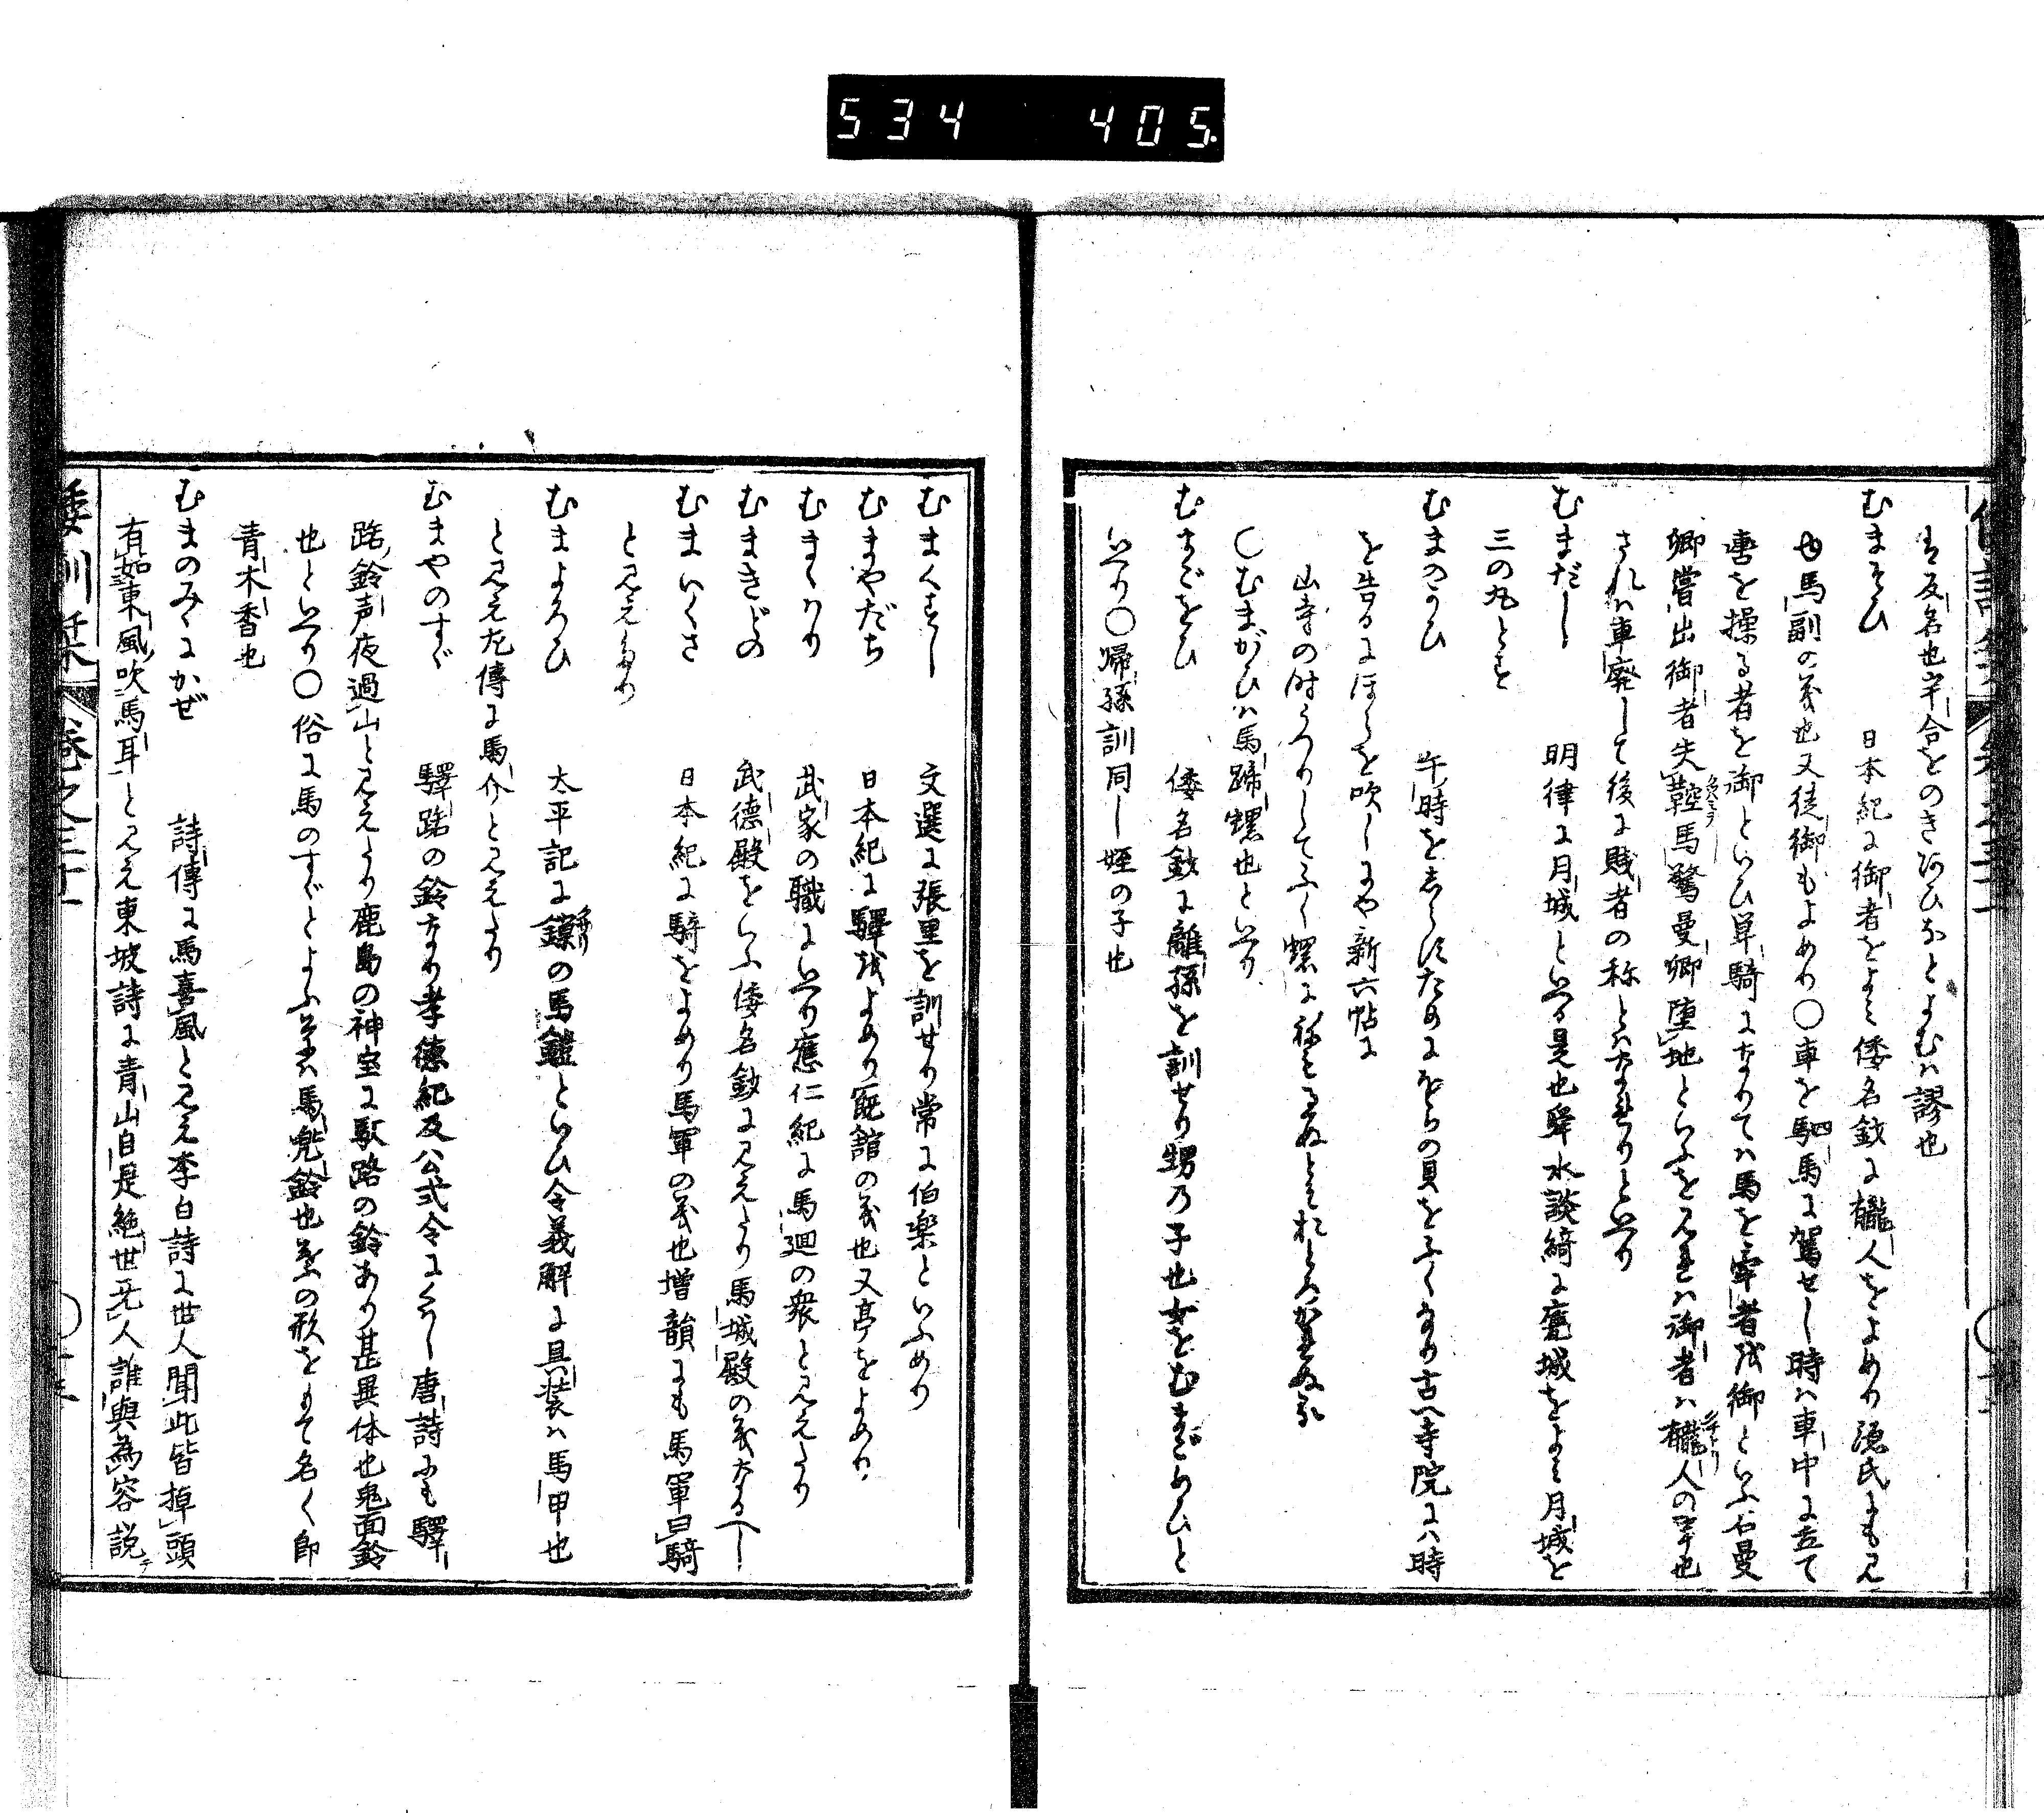 534 405.
は反名也牟合をのきあひなとよむハ謬也
むまそひ 日本紀に御者をよミ倭名鈔に龓人をよめり源氏にも見
ゆ馬副の義也又徒御もよめり〇車を駟馬に駕せし時ハ車中に立て
轡を操る者を御といひ単騎になりてハ馬を牽者を御といふ石曼
卿嘗出御者失鞚馬驚曼卿墮地といふを見れハ御者ハ龓人の事也
されハ車廃して後に賤者の称とハなれりといへり
むまだし 明律に月城といへる是也舜水談綺に甕城をよミ月城を
三の丸とす
むまのかひ 午時をしらすためにほらの貝をふくなり古へ寺院にハ時
を告るにほらを吹しにや新六帖に
山寺の時うつりしてふく螺に
〇むまがひハ馬蹄螺也といへり
むまごをひ 倭名鈔に離孫を訓せり甥乃子也女をむまごめひと
いへり〇帰孫訓同し姪の子也
むまくすし 文選に張里を訓せり常に伯楽といふめり
むまやだち 日本紀に驛をよめり厩舘の義也又亭をよめり
むまくり 武家の職にいへり應仁紀に馬廻の衆と見えたり
むまきどの 武徳殿をいふ倭名鈔に見えたり馬城殿の義なるへし
むまいくさ 日本紀に騎をよめり馬軍の義也増韻にも馬軍曰騎
と見えたり
むまよろひ 太平記に鏁の馬鎧といひ令義解に具装ハ馬甲也
と見え左傳に馬介と見えたり
むまやのすゞ 驛路の鈴なり孝徳紀及公式令にくハし唐詩にも驛
路鈴声夜過山と見えたり鹿島の神宝に駅路の鈴あり甚異体也鬼面鈴
也といへり〇俗に馬のすゞとよふ草ハ馬兜鈴也葉の形をもて名く即
青木香也
むまのみゝにかぜ 詩傳に馬喜風と見え李白詩に世人聞此皆掉頭
有如東風吹馬耳と見え東坡詩に青山自是絶世无人誰與為容説
倭訓栞 巻之三十一